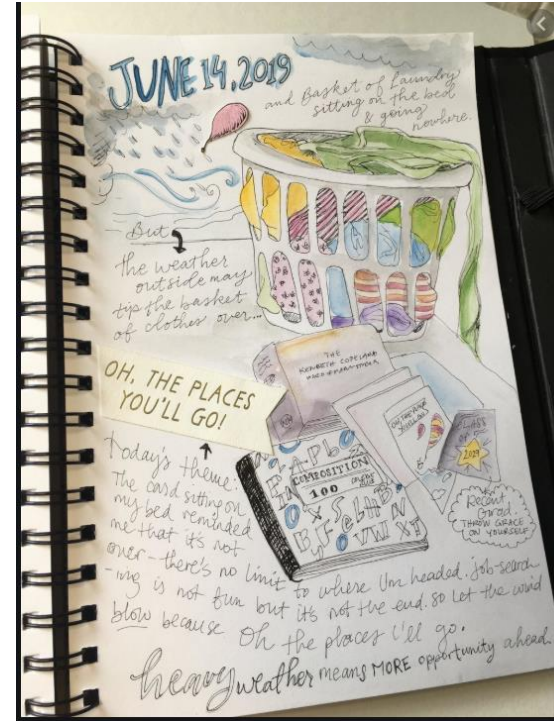 JUNE 14, 2019
and Basket of laundry
sitting on the bed
& going
nowhere.
But
the weather
outside may
tip the basket
of clothes over...
THE
KENNETH COPELAND
OH, THE PLACES
YOU'LL GO!
COMPOSITION
100
CLASS
OF
2019
Recent
Grad.
THROW GRACE
ON YOURSELF
Today's theme:
The card sitting on
my bed reminded
me that it's not
over - there's no limit to where I'm headed. job-search
-ing is not fun but it's not the end. so let the wind
blow because Oh the places i'll go.
heavy weather means MORE opportunity ahead.